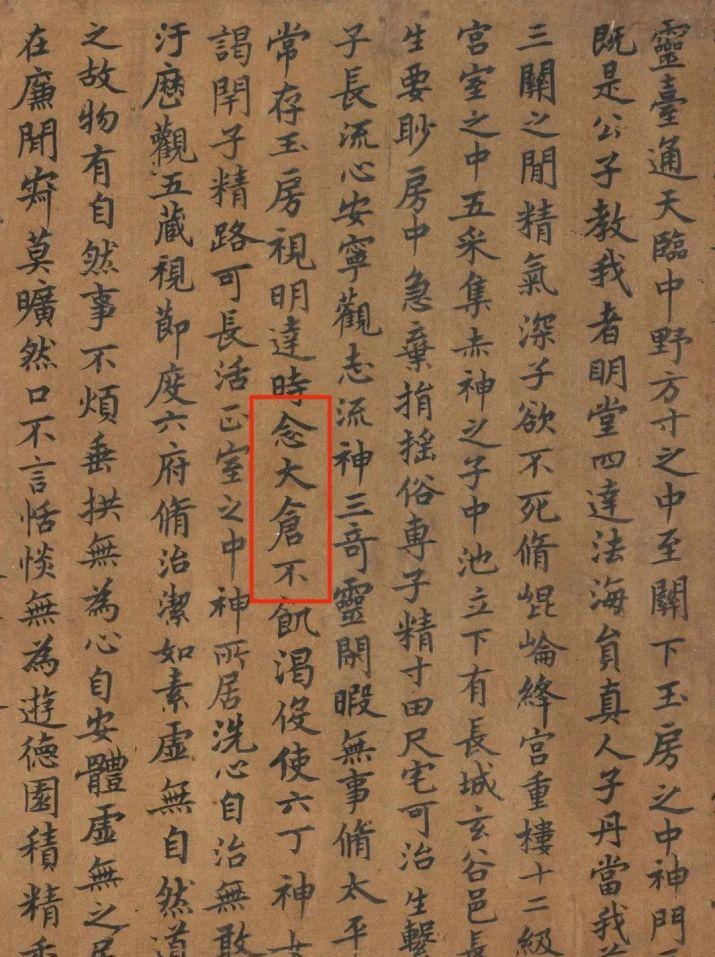 靈臺通天臨中野方寸之中至關下玉房之中神門
既是公子教我者明堂四達法海員真人子丹當我
三關之閒精氣深子欲不死脩崐崘絳宮重樓十二級
宮室之中五采集赤神之子中池立下有長城玄谷邑
生要眇房中急棄捐揺俗專子精寸田尺宅可治生繫
子長流心安寧觀志流神三奇靈閑暇無事脩太平
常存玉房視明達時念大倉不飢渴役使六丁神
謁閇子精路可長活正室之中神所居洗心自治無敢
汙歷觀五藏視節度六府脩治潔如素虛無自然道
之故物有自然事不煩垂拱無為心自安體虛無之居
在廉閒寂莫曠然口不言恬惔無為遊德園積精